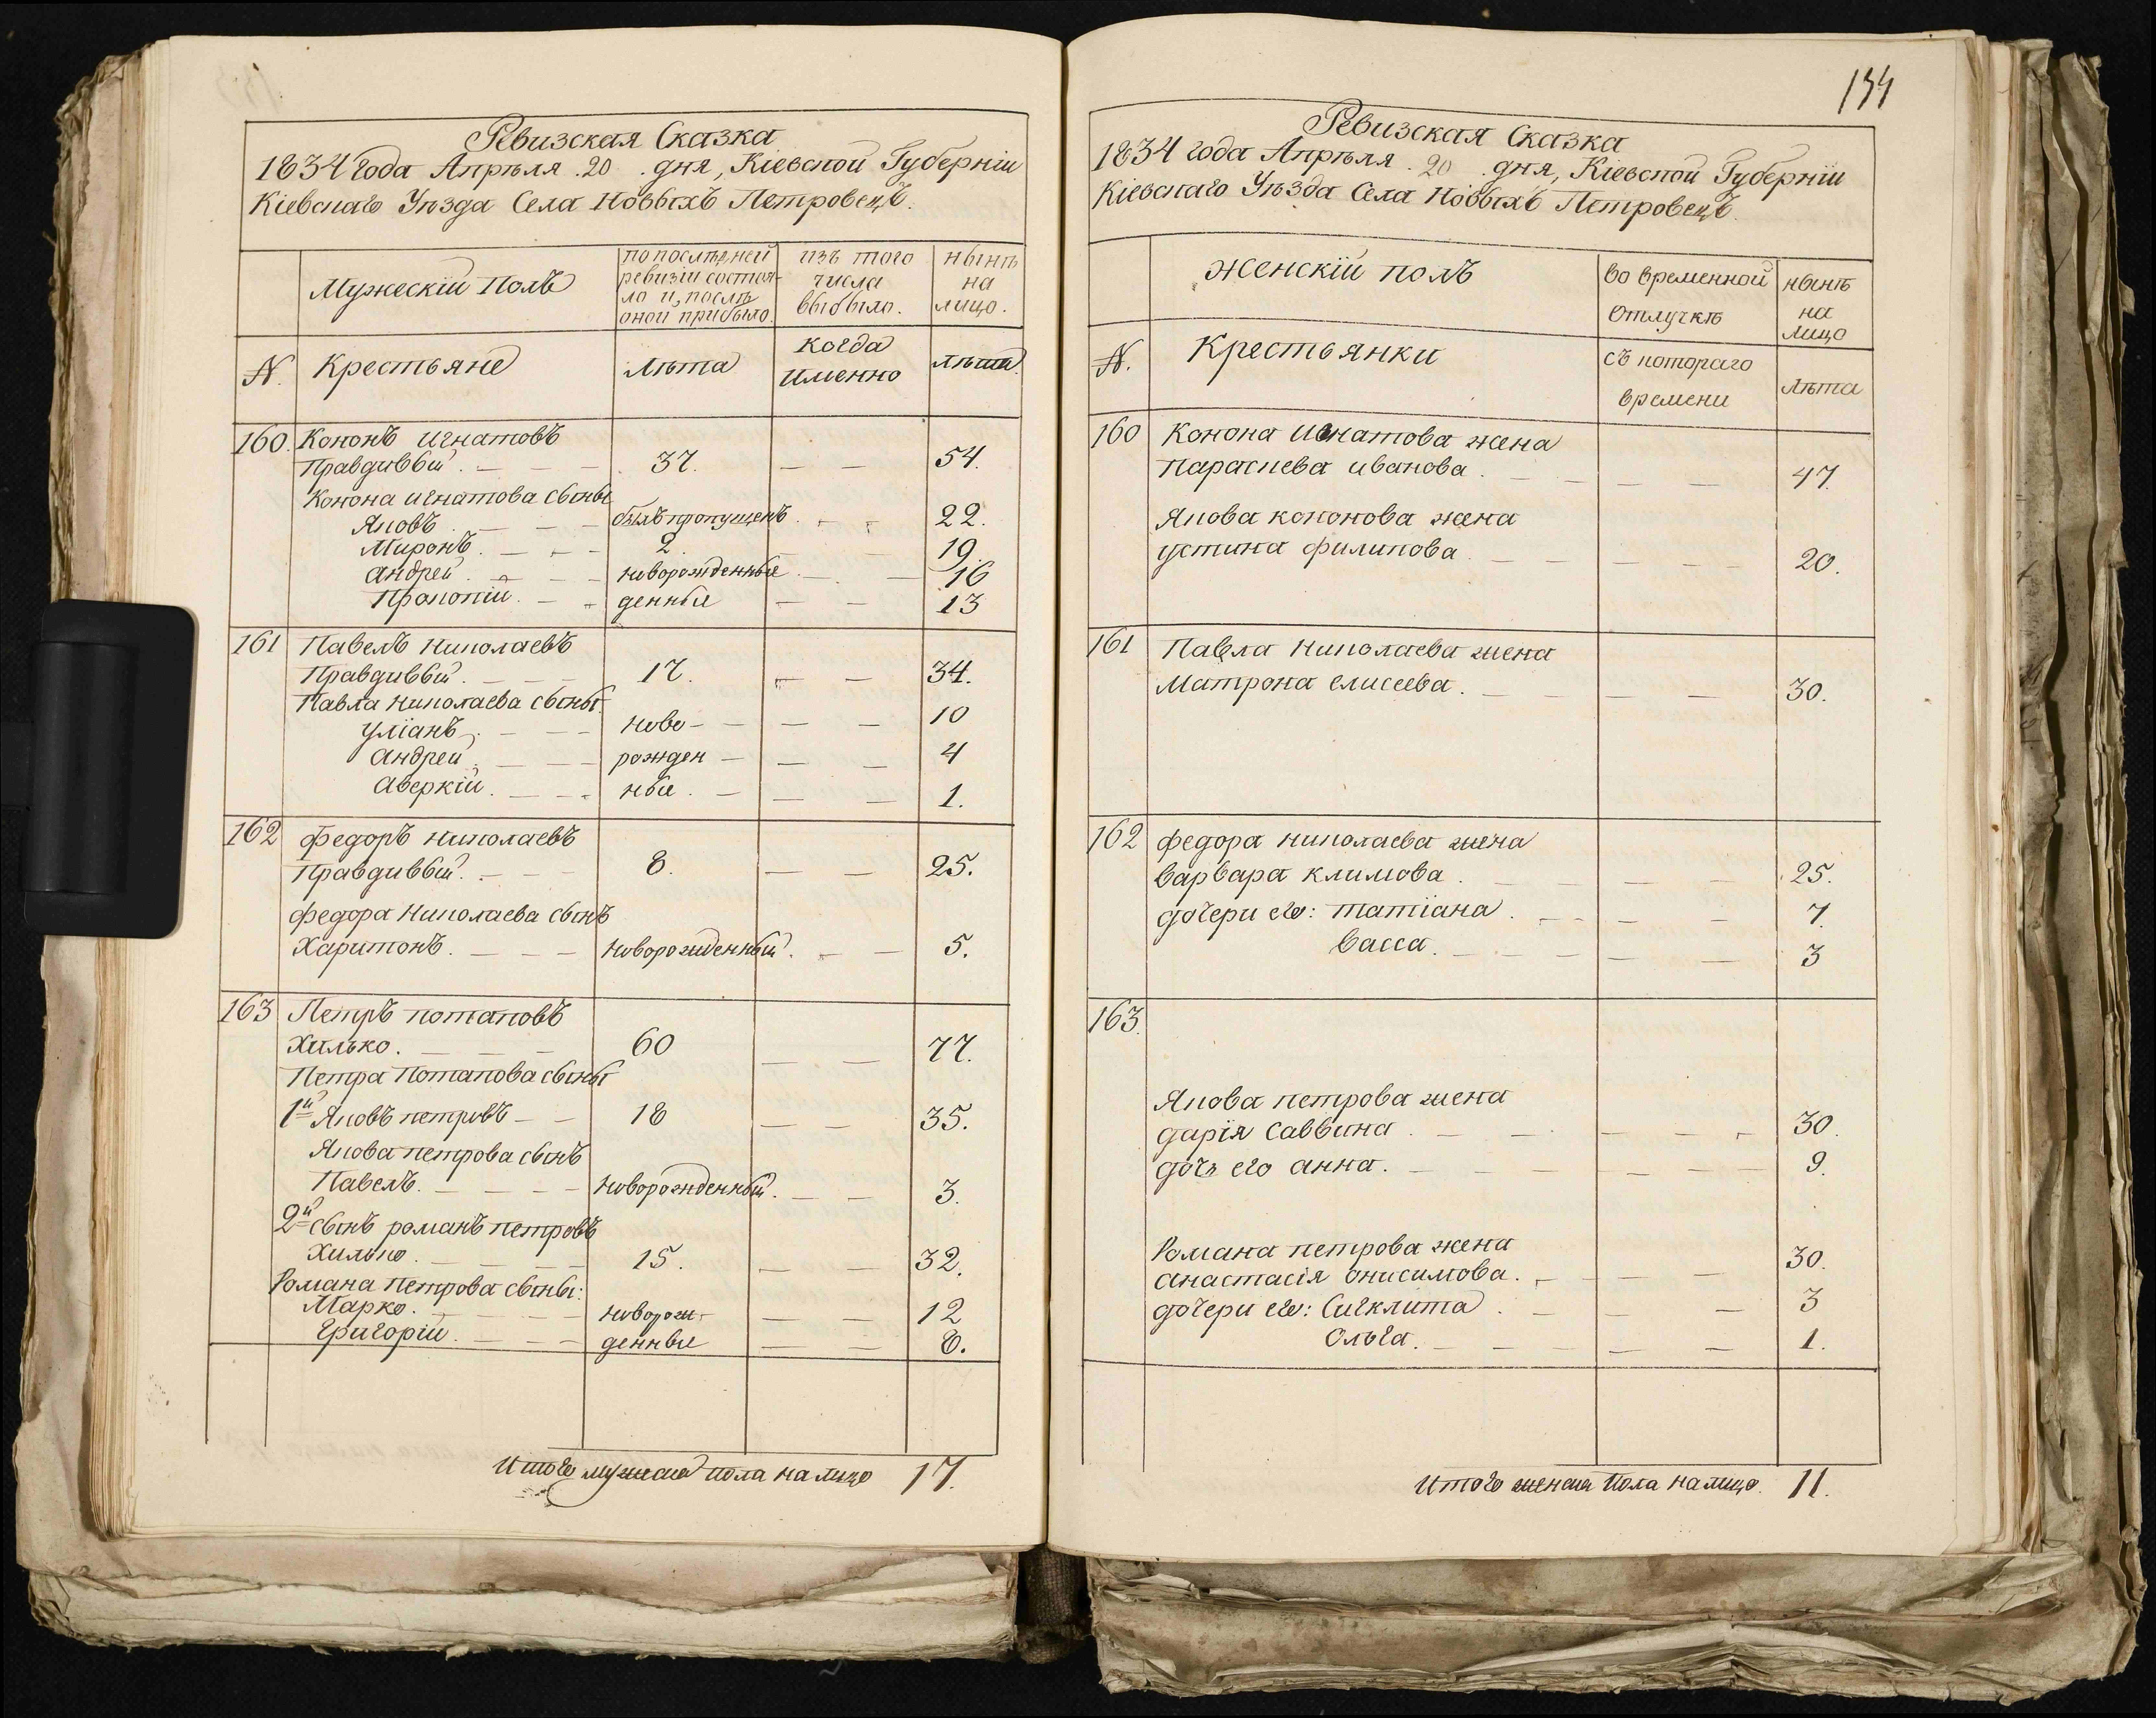 Ревизская Сказка
1834 года Апрѣля . 20 . дня, Кіевской Губерніи
Кіевскаго Уѣзда Села Новыхъ Петровецъ.
Мужескій Полъ
по послѣдней
ревизіи состоя-
ло и, послѣ
оной прибыло.
изъ того
числа
выбыло.
нынѣ
на
лицо.
№.
Крестьяне
Лѣта
когда
именно
лѣта.
160. Кононъ Игнатовъ
Правдивый. — — — 37. — — 54.
Конона Игнатова сыны
Яковъ. — — — былъ пропущенъ. — — 22.
Миронъ. — — — 2. — — 19.
Андрей. — — — новорожденные. — — 16
Прокопій. — — денные — — 13
161 Павелъ Николаевъ
Правдивый. — — — 17. — — 34.
Павла Николаева сыны
Уліанъ. — — — ново- — — 10
Андрей. — — — рожден — — — 4
Аверкій. — — — ные. — — — 1.
162 Федоръ Николаевъ
Правдивый. — — — 8. — — 25.
Федора Николаева сынъ
Харитонъ. — — — Новорожденный. — — 5.
163 Петръ Потаповъ
Хилько. — — — 60 — — 77.
Петра Потапова сыны
1й Яковъ Петровъ — — 18 — — 35.
Якова Петрова сынъ
Павелъ. — — — Новорожденный. — — 3.
2й сынъ Романъ Петровъ
Хилько. — — — 15. — — 32.
Романа Петрова сыны:
Марко. — — — Новорож- — — 12
Григорій. — — — денные — — 8.
Итого мужеска пола на лицо 17.
134
Ревизская Сказка
1834 года Апрѣля . 20 . дня, Кіевской Губерніи
Кіевскаго Уѣзда Села Новыхъ Петровецъ.
Женскій полъ
во временной
отлучкѣ
нынѣ
на
лицо
№.
Крестьянки
съ котораго
времени
Лѣта
160 Конона Игнатова жена
Параскева Иванова. — — — — 47.
Якова Кононова жена
Устина Филипова. — — — — 20.
161 Павла Николаева жена
Матрона Елисеева. — — — — 30.
162 Федора Николаева жена
Варвара Климова. — — — — 25.
дочери его: Татіана. — — — — 7.
Васса. — — — — 3
163.
Якова Петрова жена
Дарія Саввина. — — — — 30.
дочь его Анна. — — — — 9.
Романа Петрова жена
Анастасія Онисимова. — — — — 30.
дочери его: Сигклита. — — — 3
Ольга. — — — — 1.
Итого женска Пола на лицо. 11.